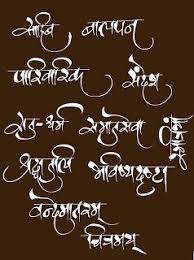 बालपन
पारिवारिक संदेश
समाजसेवा
श्रद्धांजलि भविष्यदृष्टा
वन्देमातरम्
चित्रमय